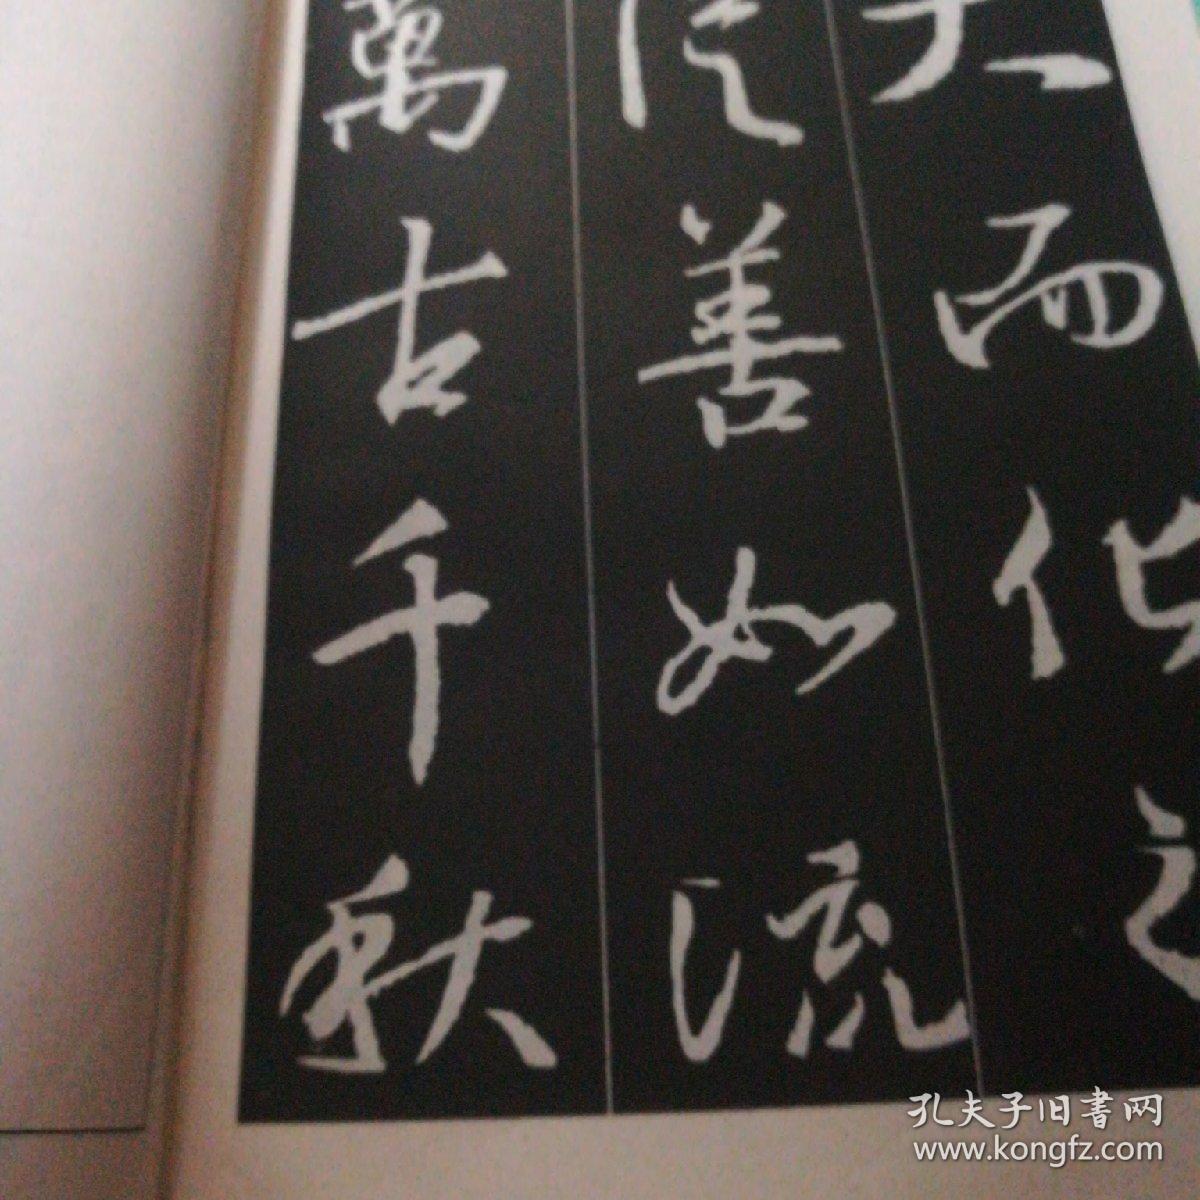 而化之
從善如流
萬古千秋
孔夫子旧書网
www.kongfz.com